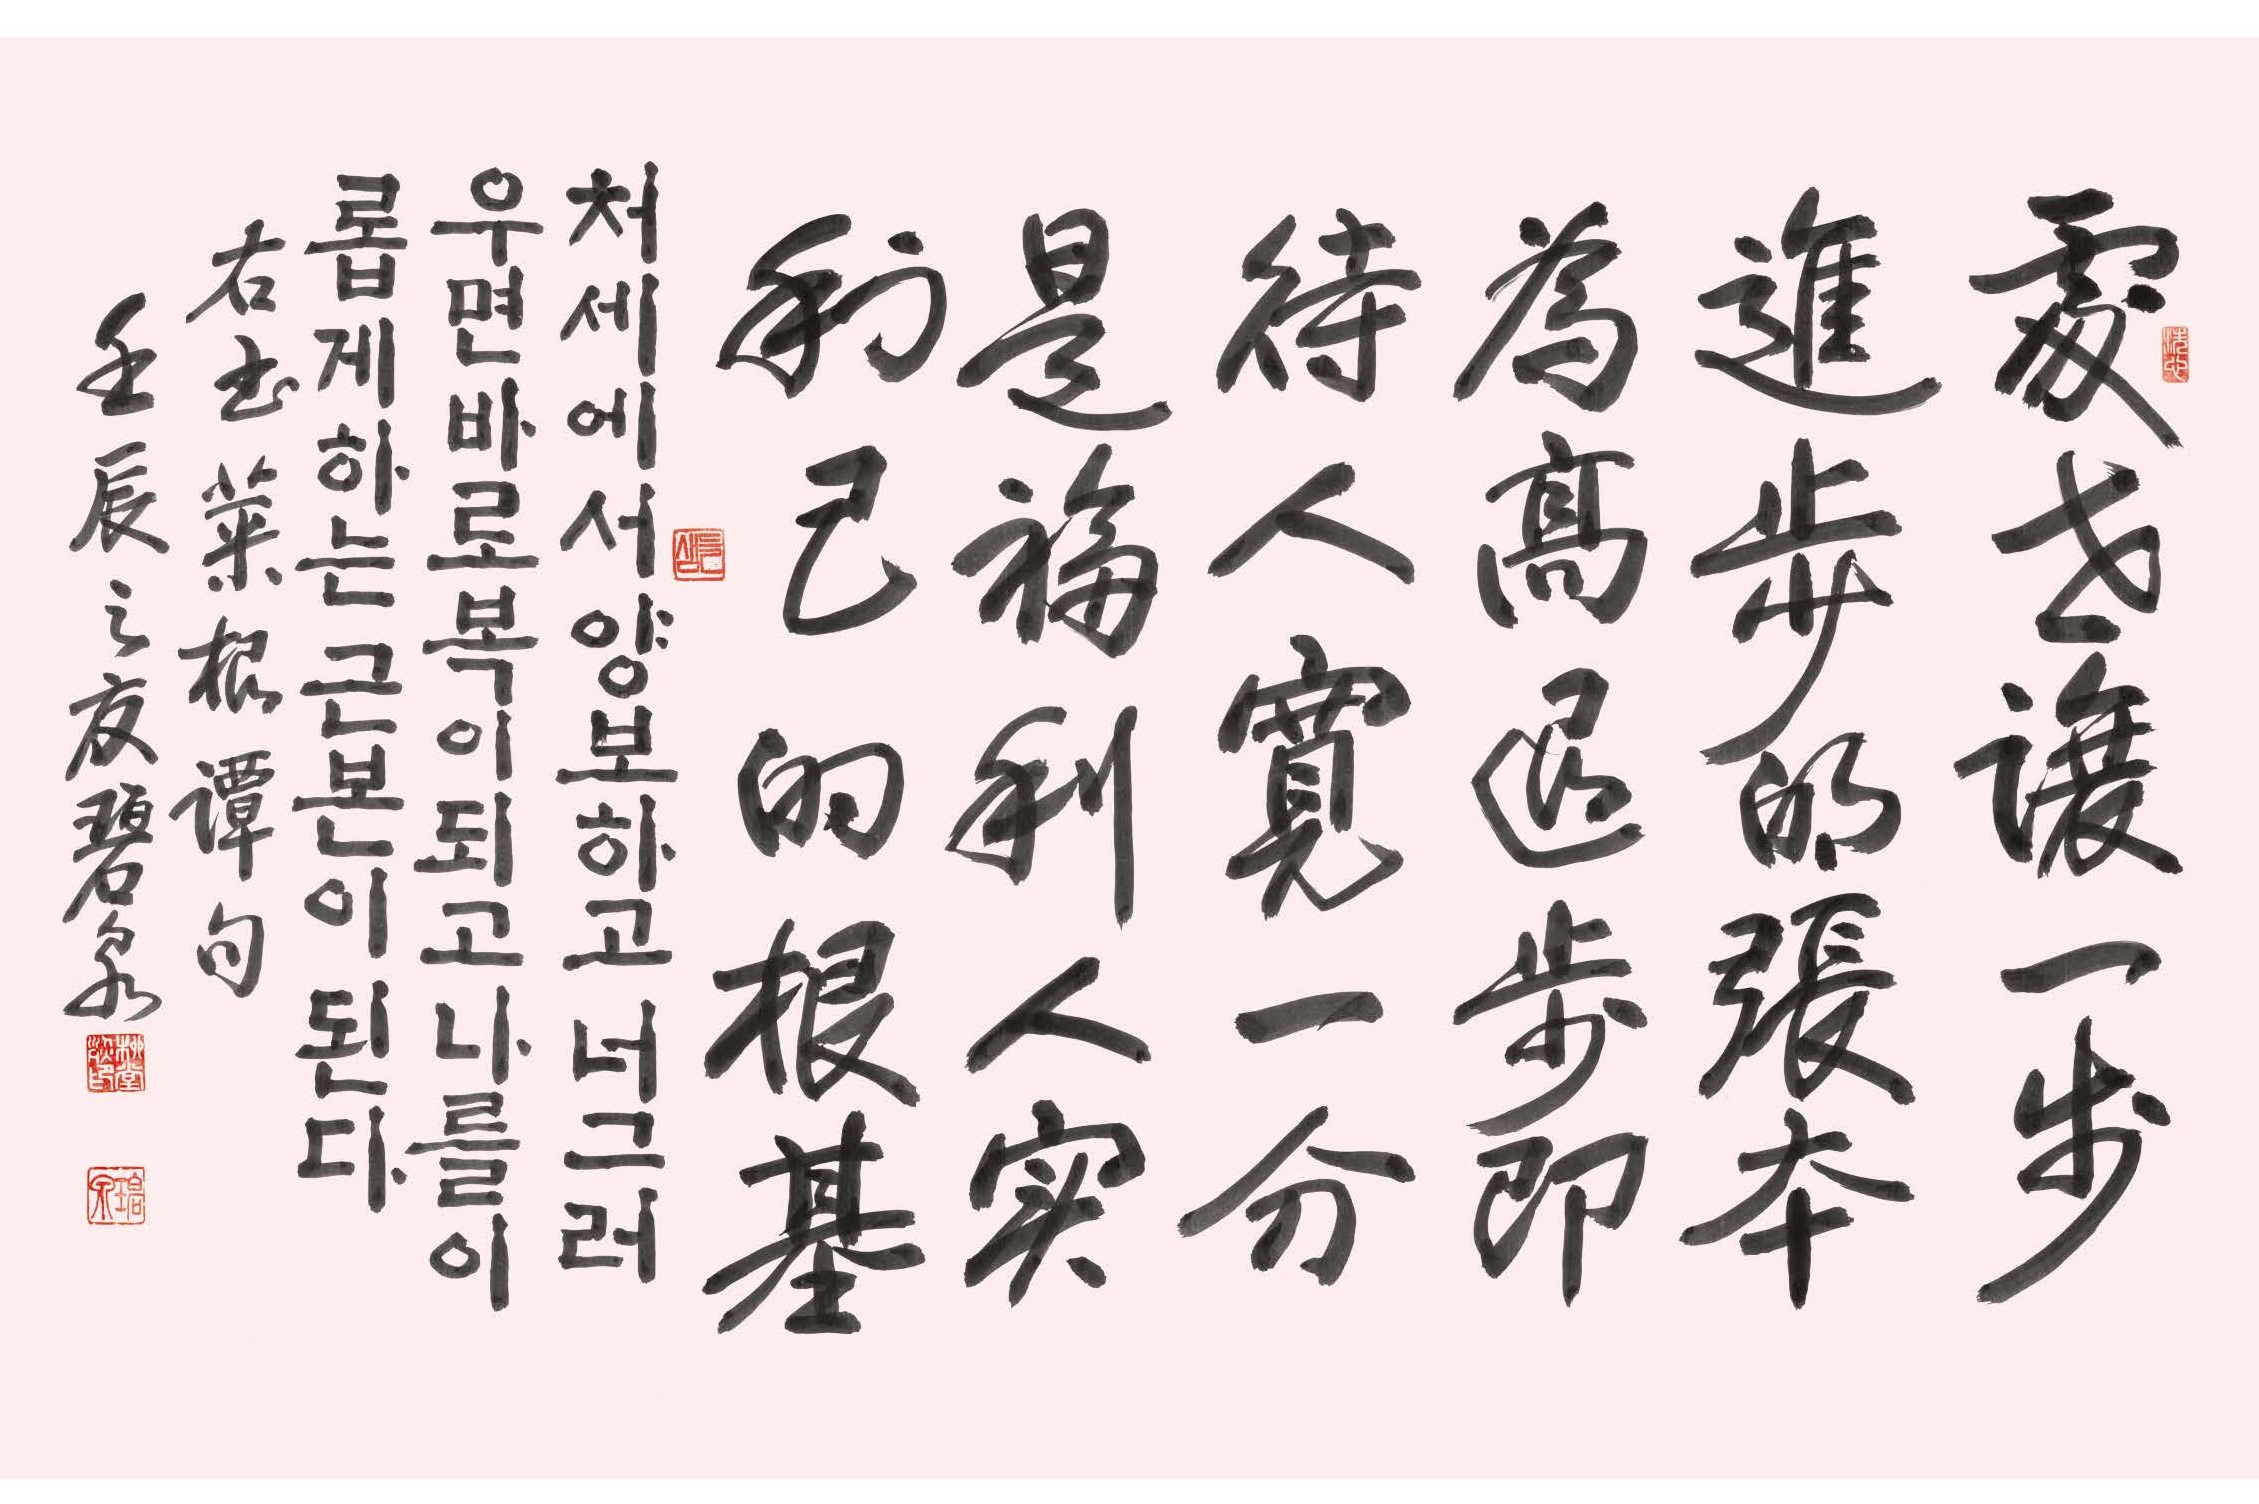 處世讓一步
進步的張本
為高退步即
待人寬一分
是福利人实
利己的根基
처세에서양보하고너그러
우면바로복이되고나를이
롭게하는근본이된다
右书菜根譚句
壬辰之 碧泉